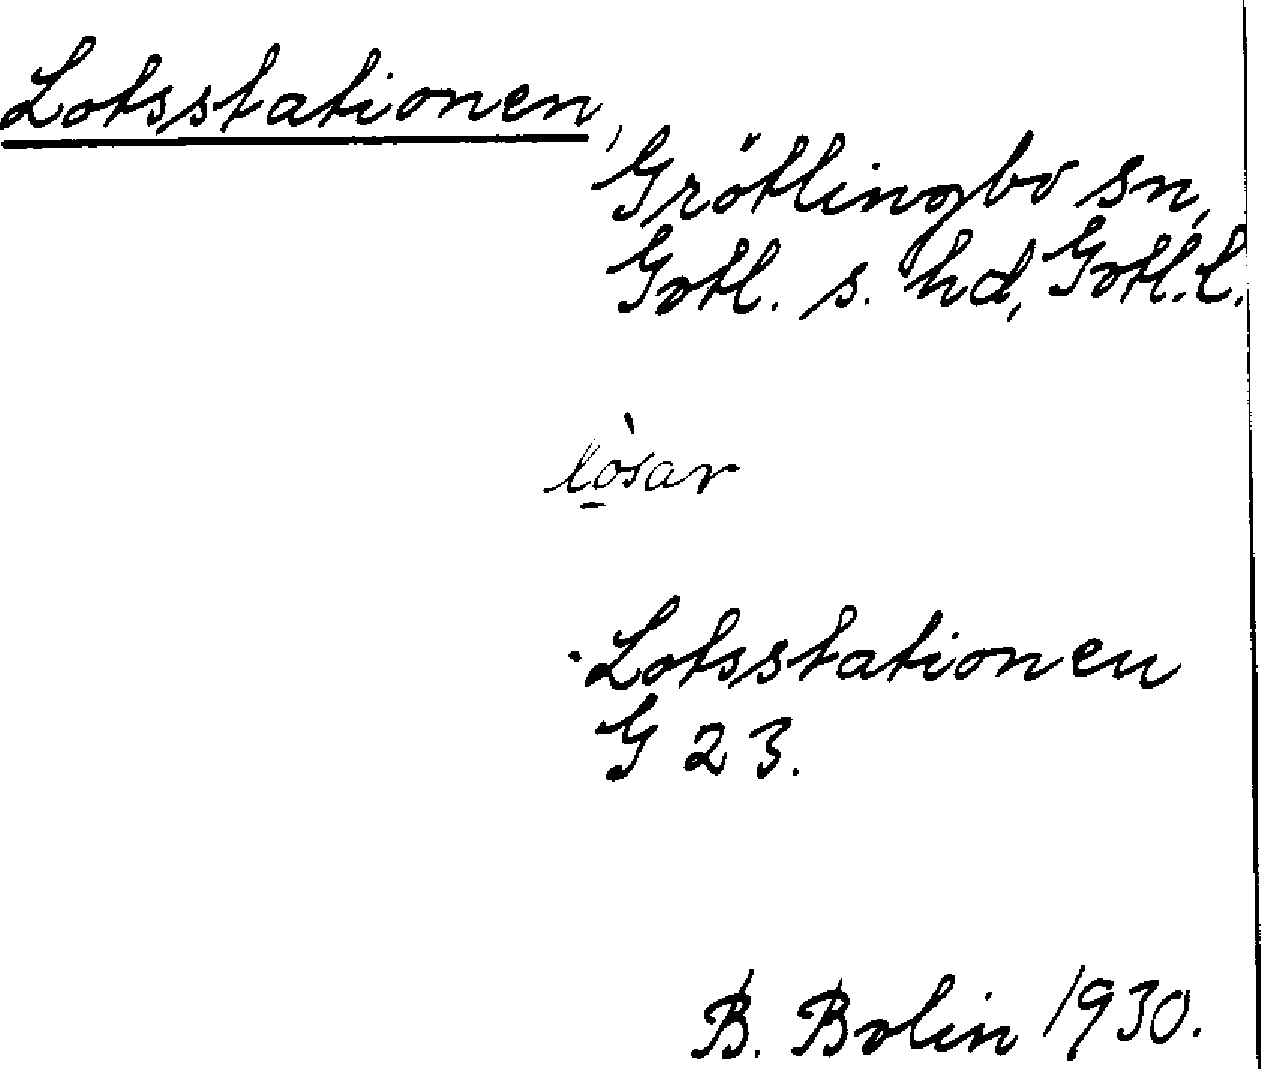 Lotsstationen,
Grötlingbo sn,
Gotl. s. hd, Gotl. l.
lò̱sar
Lotsstationen
G 23.
B. Bolin 1930.